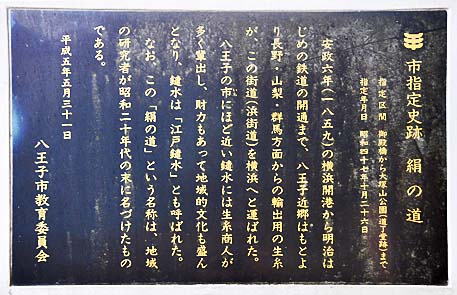 市指定史跡 絹の道
指定区間 御殿橋から大塚山公園(道了堂跡)まで
指定年月日 昭和四十七年十月二十六日
安政六年(一八五九)の横浜開港から明治は
じめの鉄道の開通まで、八王子近郷はもとよ
り長野・山梨・群馬方面からの輸出用の生糸
が、この街道(浜街道)を横浜へと運ばれた。
八王子の市にほど近い鑓水には生糸商人が
多く輩出し、財力もあって地域的文化も盛ん
となり、鑓水は「江戸鑓水」とも呼ばれた。
なお、この「絹の道」という名称は、地域
の研究者が昭和二十年代の末に名づけたもの
である。
平成五年五月三十一日
八王子市教育委員会